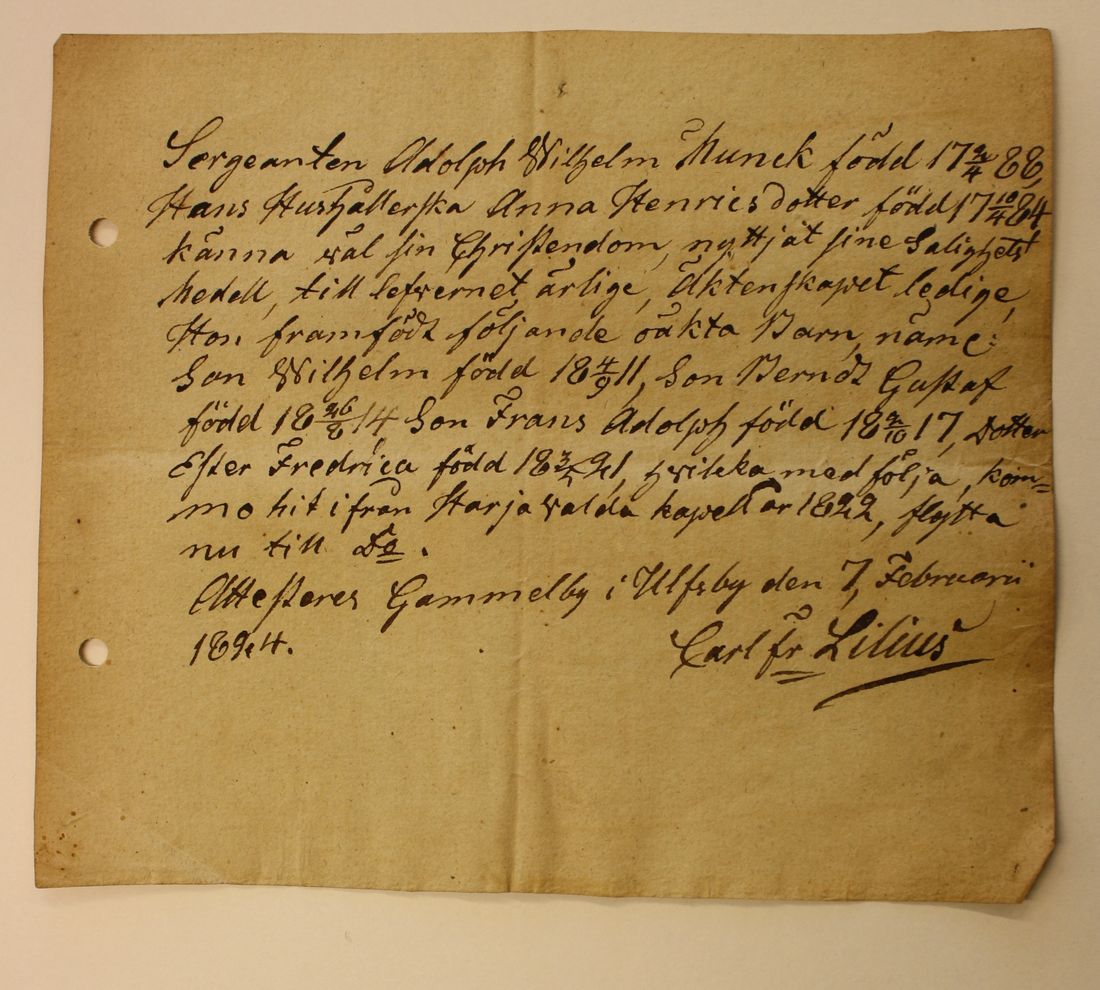 Sergeanten Adolph Wilhelm Munck född 17 2/4 88,
Hans Hushållerska Anna Henricsdotter född 17 10/4 84
känna wäl sin Christendom, nyttjat sine Salighets
Medell, till lefwernet ärlige, Äktenskapet ledige,
Hon framfödt följande oäkta Barn, näml:
Son Wilhelm född 18 4/9 11, Son Berndt Gustaf
född 18 26/8 14 Son Frans Adolph född 18 2/10 17, Dotter
Ester Fredrica född 18 21, hwilka medfölja, kom=
mo hit ifrån Harjawalda kapell år 1822, flytta
nu till Do.
Attesteres Gammelby i Ulfsby den 7, Februarii
1824. Carl Fr Lilius